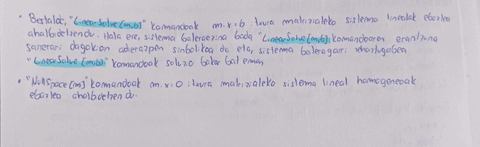 • Bestalde, "LinearSolve[m,b]" komandoak m.x=b itura matrizialeko sistema linealak ebaztea
ahalbidetzen du. Hala ere, sistema bateraezina bada "LinearSolve[m,b]" komandoaren erantzuna
sarreran dagokion adierazpen sinbolikoa da eta, sistema bateragarri indeterminatua bada
"LinearSolve[m,b]" komandoak soluzio bakar bat ematen
• "NullSpace[m]" komandoak m.x=0 itura matrizialeko sistema lineal homogeneoak
ebaztea ahalbidetzen du.